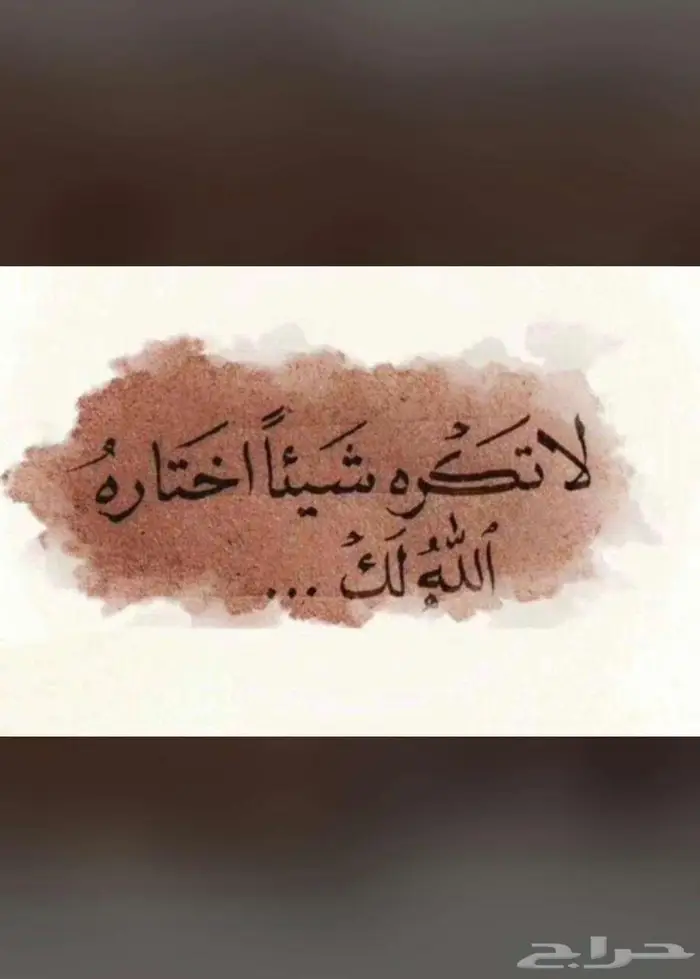 لا تَكْره شَيئاً اختَارهُ
اللهُ لَكْ ...
حراج